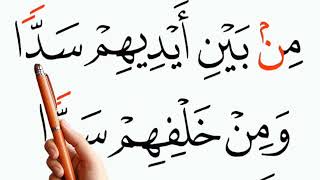 مِنۢ بَيْنِ أَيْدِيهِمْ سَدًّا
وَمِنْ خَلْفِهِمْ سَدًّا